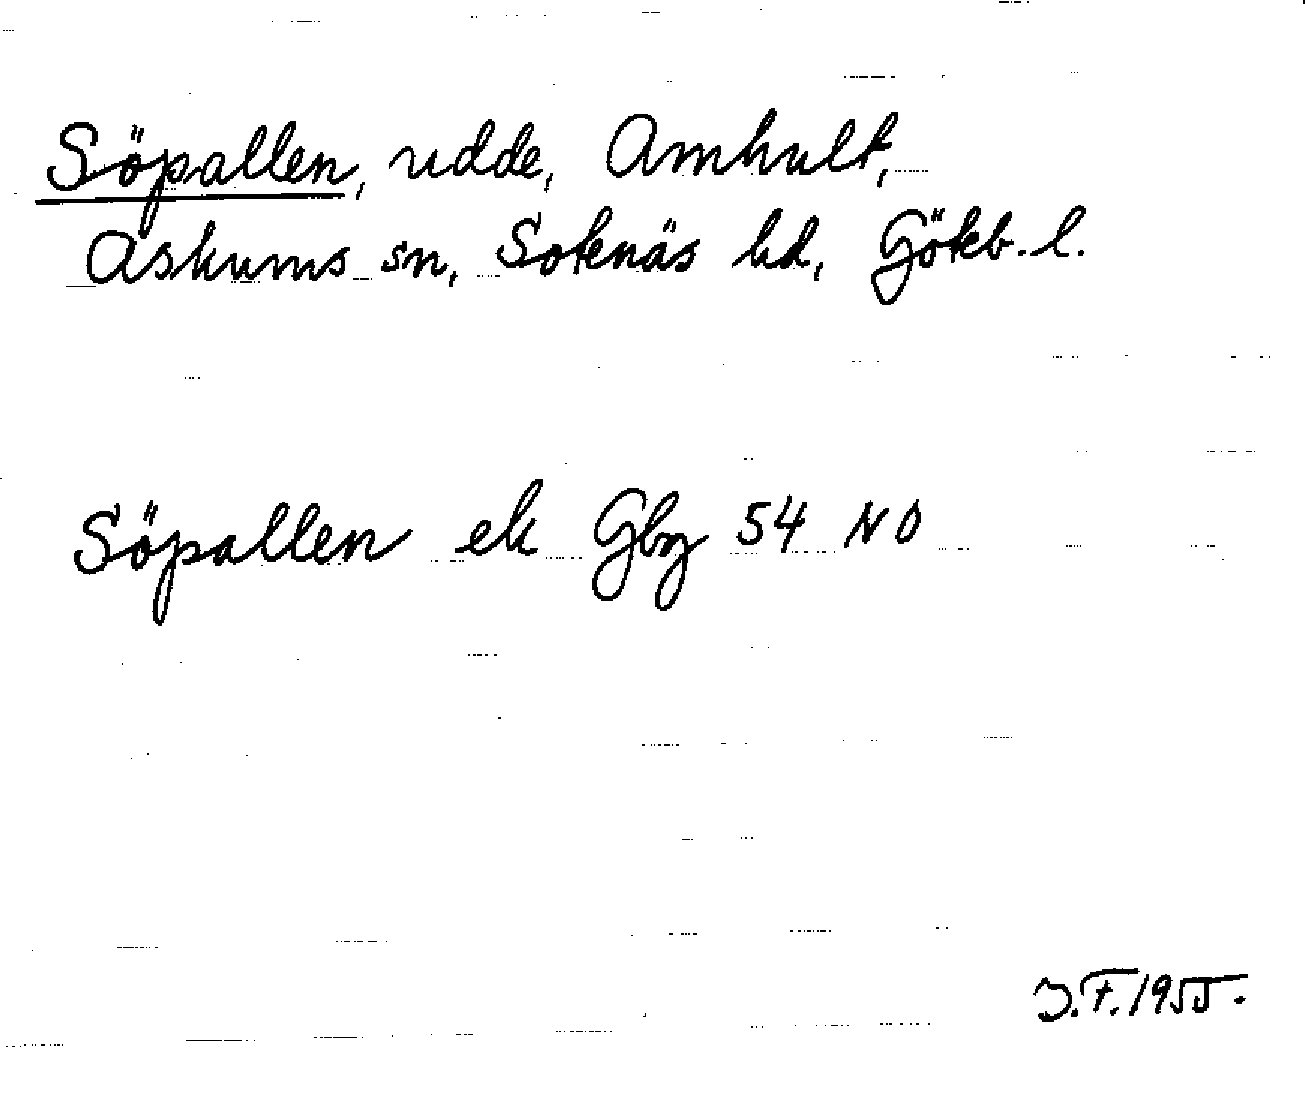 Söpallen, udde, Amhult,
Askums sn, Sotenäs hd, Göteb. l.
Söpallen ek Gbg 54 NO
J.F. 1955.